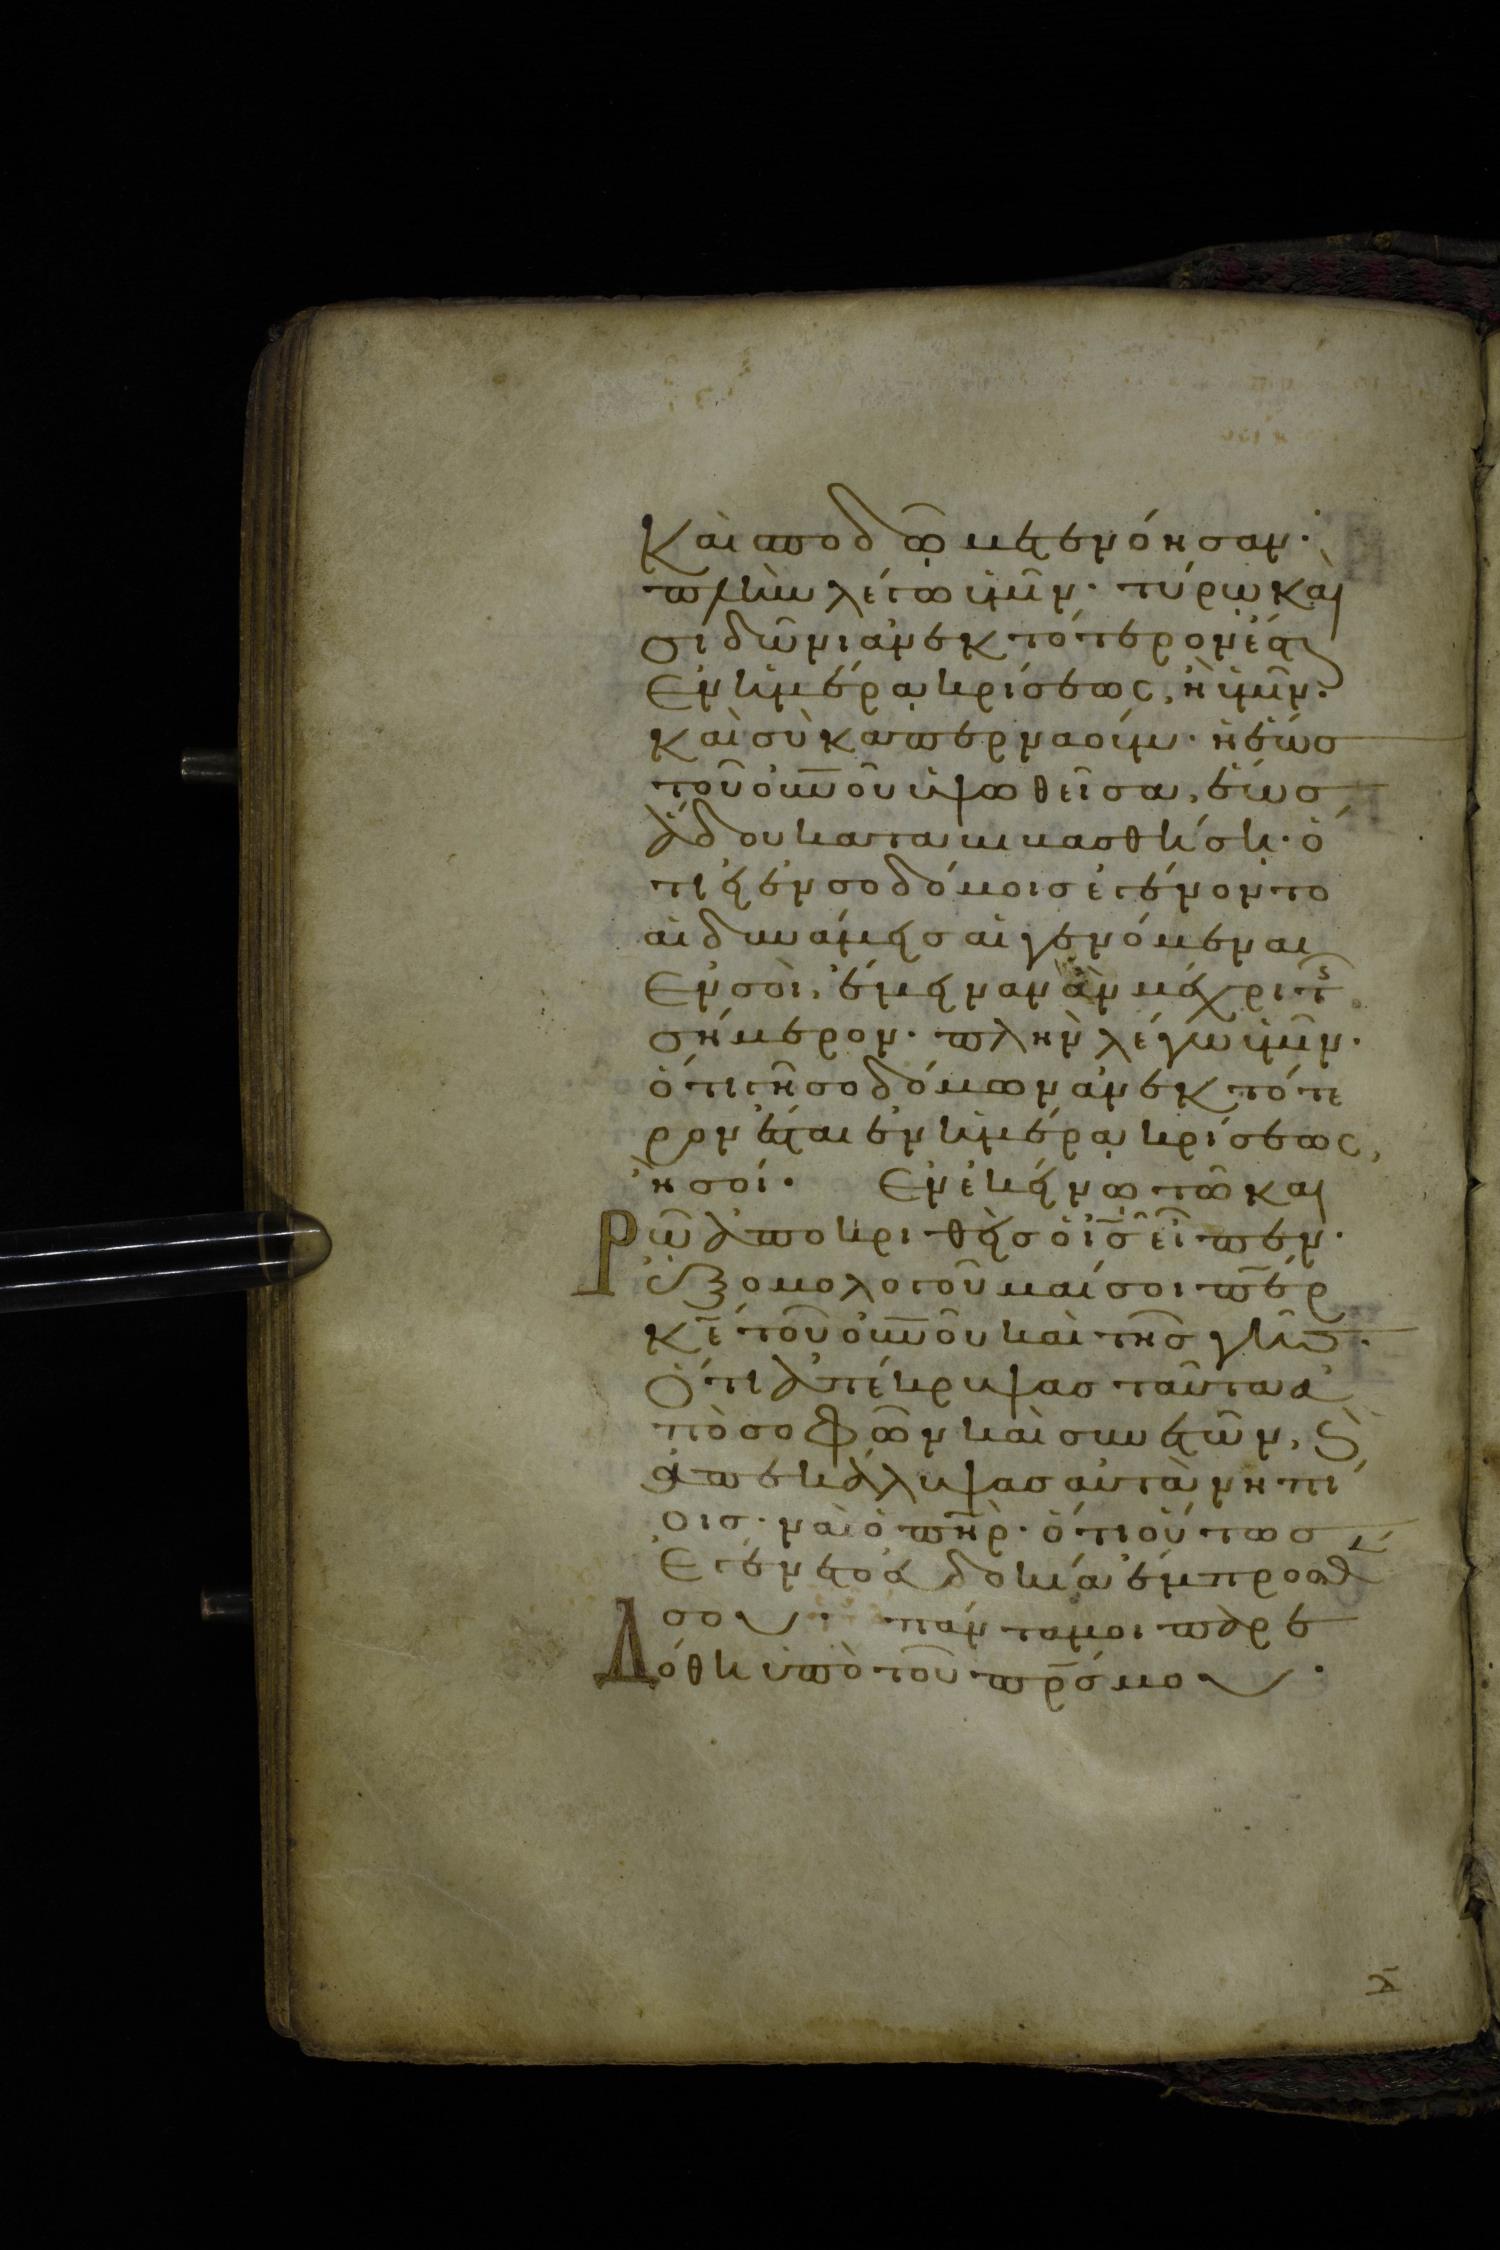 Καὶ σποδῶ μετενόησαν·
πλὴν λέγω ὑμῖν· τύρω καὶ
σιδῶνι ἀνεκτότερον ἔσται
Ἐν ἡμέρα κρίσεως, ἢ ὑμῖν·
Καὶ σὺ καπερναούμ· ἡ ἕως
τοῦ οὐνοῦ ὑψωθεῖσα, ἕως
ἅδου καταβιβασθήση· ὅ
τι εἰ ἐν σοδόμοις ἐγένοντο
αἱ δυνάμεις αἱ γενόμεναι
Ἐν σοὶ, ἔμειναν ἂν μέχρι τῆς
σήμερον· πλὴν λέγω ὑμῖν·
ὅτι γῆ σοδόμων ἀνεκτότε
ρον ἔσται ἐν ἡμέρα κρίσεως,
ἢ σοί· Ἐν ἐκείνω τῶ και
Ρῶ ἀποκριθεὶς ὁ ις εἶπεν·
Ἐξομολογοῦμαί σοι περ
κε τοῦ οὐνοῦ καὶ τῆς γῆς·
Ὅτι ἀπέκρυψας ταῦτα ἀ
πὸ σοφῶν καὶ συνετῶν, καὶ
ἀπεκάλυψας αὐτὰ νηπί
οις· ναὶ ὁ πηρ· ὅτι οὕτως
Ἐγένετο εὐδοκία ἔμπροσθέν
σου· πάντα μοι παρε
Δόθη ὑπὸ τοῦ πρς μου·
λ